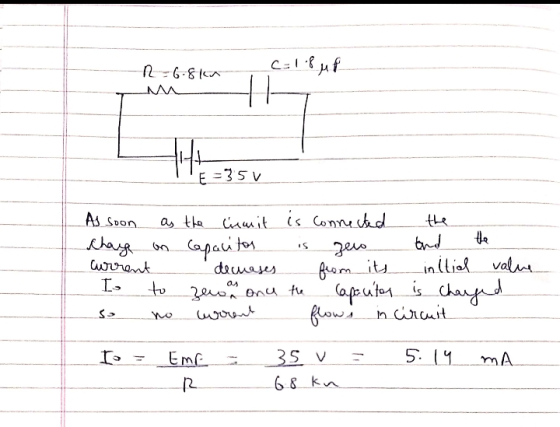 R = 6.8 kΩ
C = 1.8 μf
E = 35 V
As soon as the circuit is connected the
charge on capacitor is zero and the
current decreases from its initial value
I₀ to zero as once the capacitor is charged
so no current flows in circuit
I₀ = Emf = 35 V = 5.14 mA
R 68 kΩ